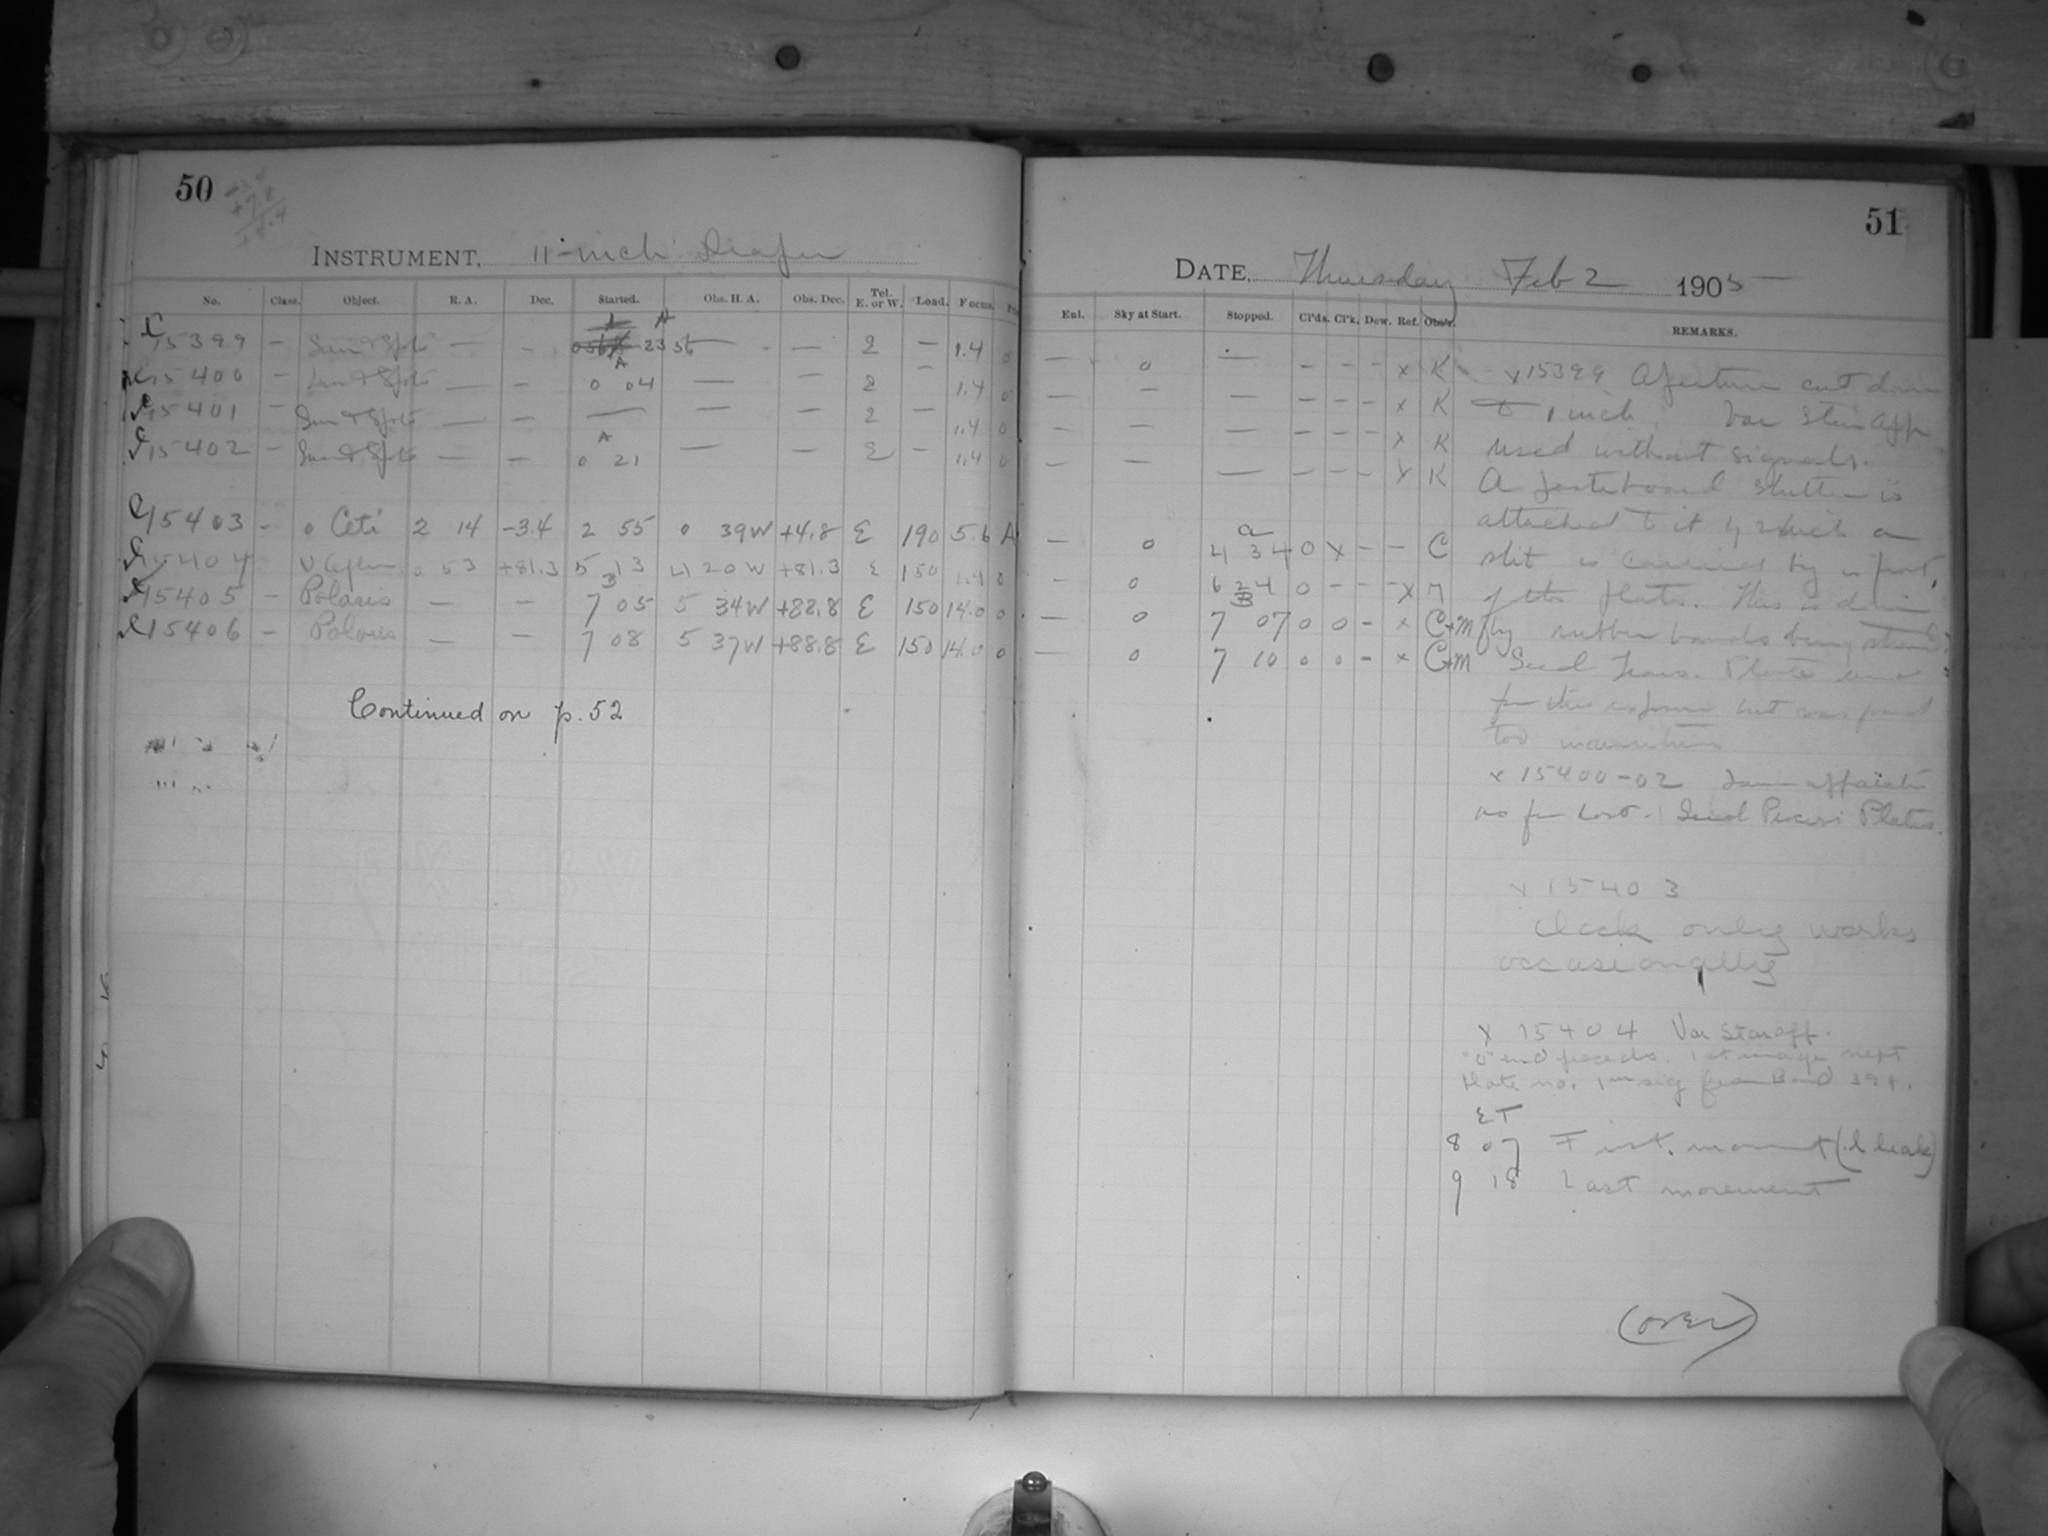 50
INSTRUMENT, 11-inch Draper
No. Class. Object. R. A. Dec. Started. Obs. H. A. Obs. Dec. Tel. E. or W. Load. Focus.
15399 — Sun & Spots — — 23 56 — — E — 1.4 0
15400 — Sun & Spots — — 0 04 — — E — 1.4 0
15401 — Sun & Spots — — — — — E — 1.4 0
15402 — Sun & Spots — — 0 21 — — E — 1.4 0
15403 - o Ceti 2 14 -3.4 2 55 0 39W +4.8 E 190 5.6 A
15404 U Cephei 0 53 +81.3 5 13 4 20W +81.3 E 150 1.4 0
15405 - Polaris — — 7 05 5 34W +88.8 E 150 14.0 0
15406 - Polaris — — 7 08 5 37W +88.8 E 150 14.0 0
Continued on p. 52
51
DATE, Thursday Feb 2 1905
Enl. Sky at Start. Stopped. Cl'ds. Cl'k. Dew. Ref. Obs'r. REMARKS.
— 0 — - - - x K
— — — - - - x K
— — — - - - x K
— — — - - - x K
— 0 4 34 0 x - - C
— 0 6 24 0 - - x M
— 0 7 07 0 0 - x C+M
— 0 7 10 0 0 - x C+M
x15399 Aperture cut down
to 1 inch. Var Star App
used without signals.
A pasteboard shutter is
attached to it by which a
slit is carried by in front
of the plate. This is done
by rubber bands being
Seed Plate used
for this exposure but was found
too
x 15400-02 Same apparatus
as for last. Seed Process Plates.
x 15403
Clock only works
occasionally
x 15404 Var Star app.
"0" end precedes. 1st image next
Plate no. 1st sig from Bond 394.
ET
8 07 First movement
9 18 Last movement
(over)